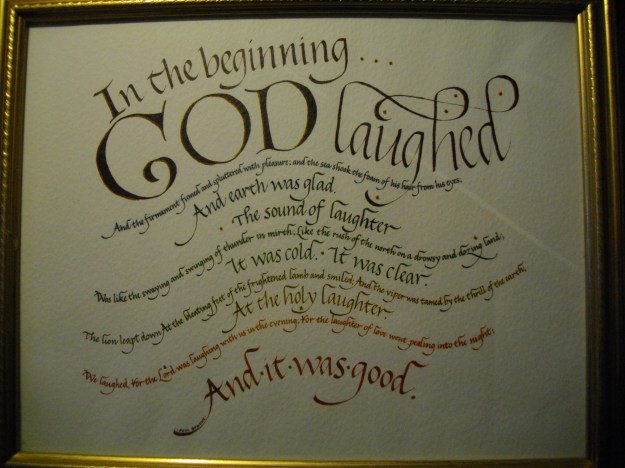 In the beginning ...
GOD laughed
And the firmament fumed and spluttered with pleasure; and the sea shook the foam of his hair from his eyes;
And earth was glad.
The sound of laughter
Was like the swaying and swinging of thunder in mirth; Like the rush of the north on a drowsy and dozing land;
It was cold. It was clear.
The lion leapt down At the bleating feet of the frightened lamb and smiled; And the viper was tamed by the thrill of the earth,
At the holy laughter
We laughed, For the Lord was laughing with us in the evening; For the laughter of love went pealing into the night;
And·it·was·good.